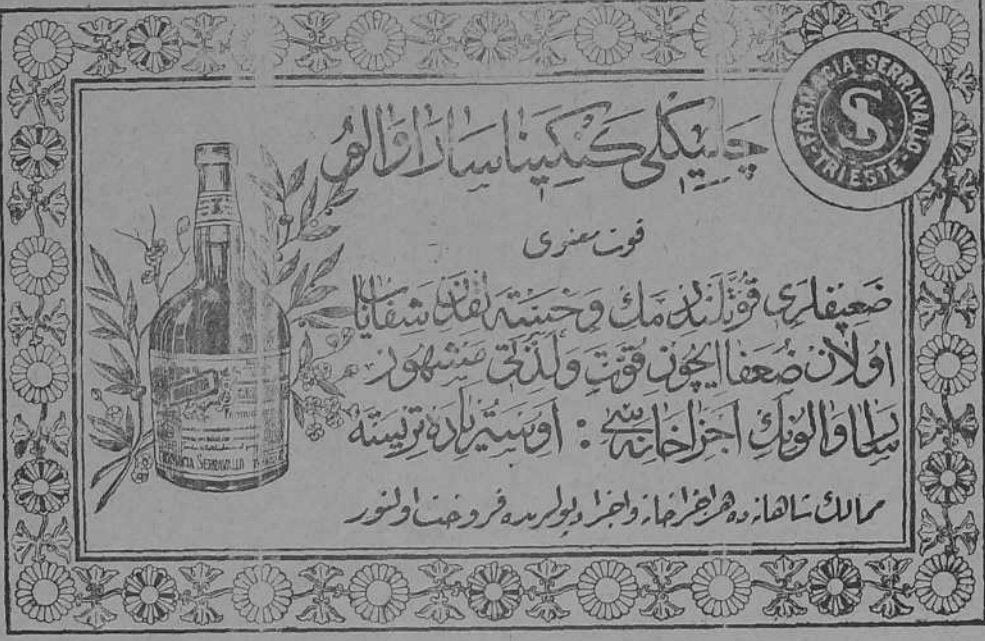 FARMACIA-SERRAVALLO
-TRIESTE-
چلیکلی کنکینا ساراوالو
قوت معنوی
ضعیفلری قوتلندرمك و خسته لقدن شفایاب
اولان ضعفا ایچون قوت ولذتی مشهور
ساراوالونك اجزاخانه سی : اوستریاده تریسته
ممالك شاهانه ده هر اجزاخانه و اجزا دپولرنده فروخت اولنور
SERRAVALLO